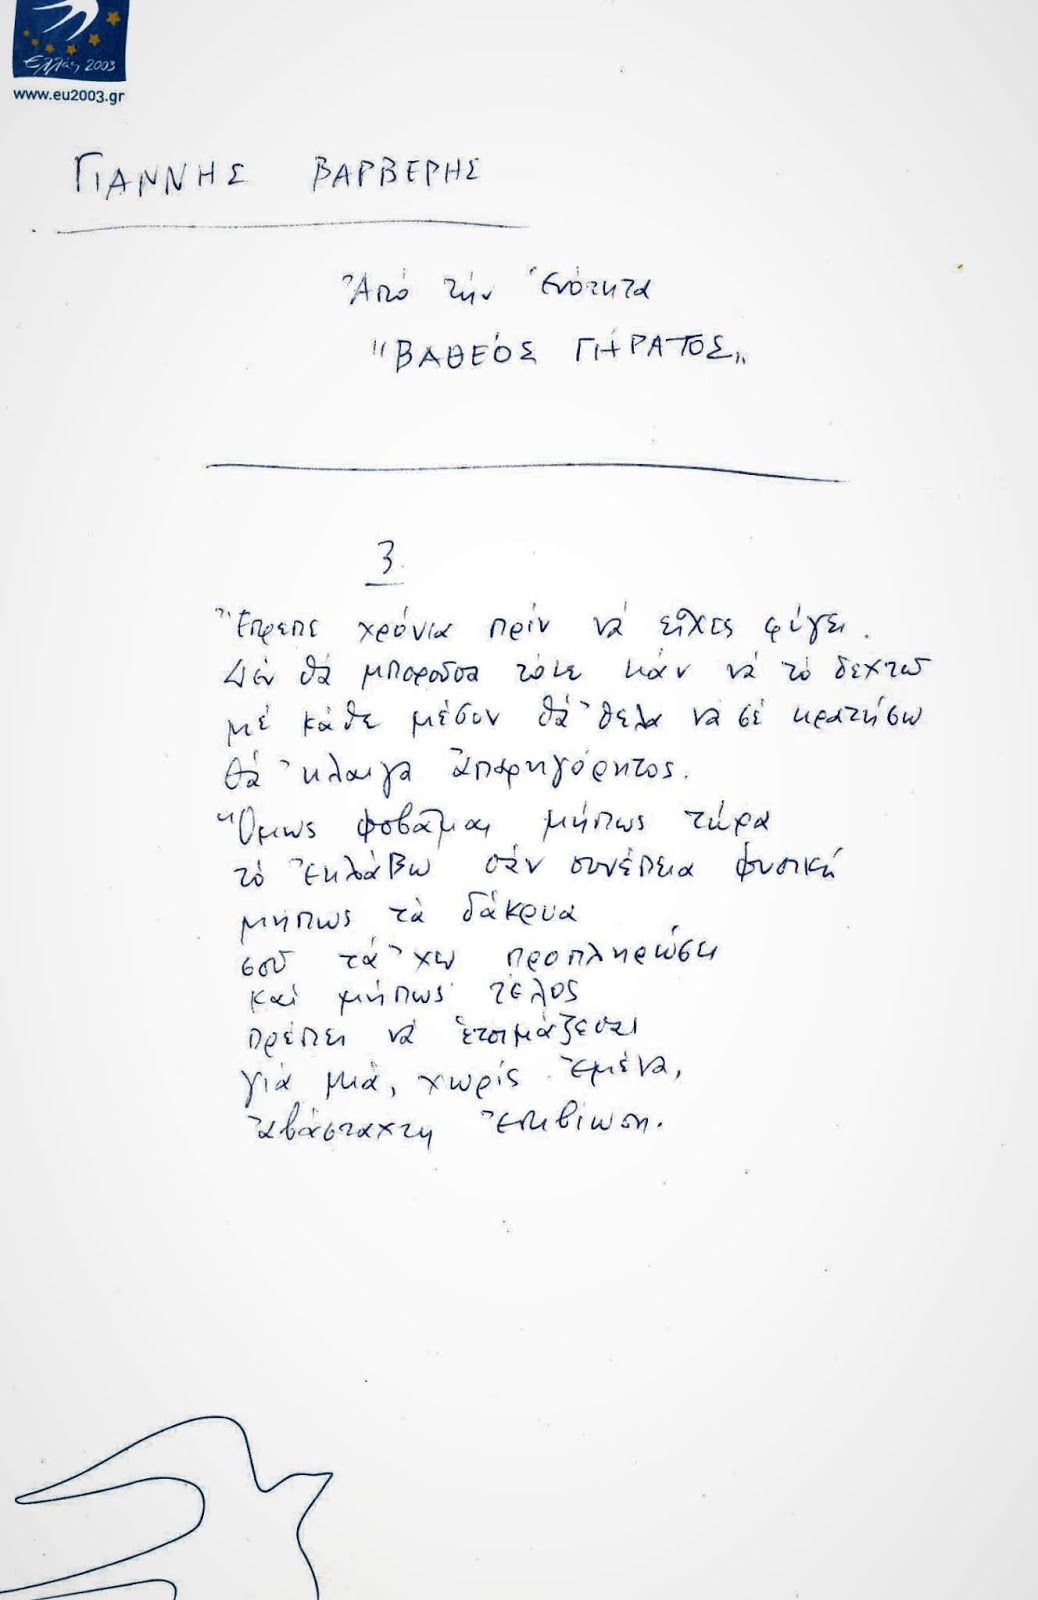 Ἑλλάς 2003
www.eu2003.gr
ΓΙΑΝΝΗΣ ΒΑΡΒΕΡΗΣ
Ἀπό τήν Ἑνότητα
"ΒΑΘΕΟΣ ΓΗΡΑΤΟΣ"
3.
Ἔπρεπε χρόνια πρίν νά εἶχες φύγει.
Δέν θά μποροῦσα τότε κἄν νά τό δεχτῶ
μέ κάθε μέσον θά ᾿θελα νά σέ κρατήσω
θά ᾿κλαιγα ἀπαρηγόρητος.
Ὅμως φοβᾶμαι μήπως τώρα
τό ἐκλάβω σάν συνέπεια φυσική
μήπως τά δάκρυα
σοῦ τά ᾿χω προπληρώσει
καί μήπως τέλος
πρέπει νά ἑτοιμάζεσαι
γιά μιά, χωρίς ἐμένα,
ἀβάσταχτη ἐπιβίωση.